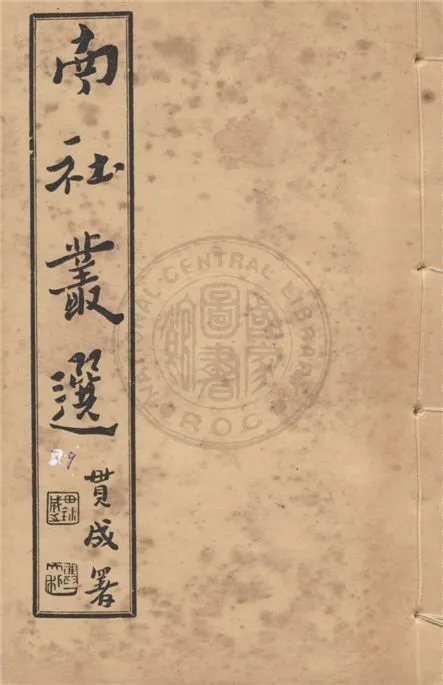 南社叢選
貫成署
39
NATIONAL CENTRAL LIBRARY
R.O.C.
國家圖書館